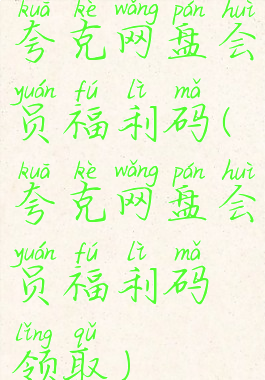 kuā kè wǎng pán huì
夸克网盘会
yuán fú lì mǎ
员福利码(
kuā kè wǎng pán huì
夸克网盘会
yuán fú lì mǎ
员福利码
lǐng qǔ
领取)